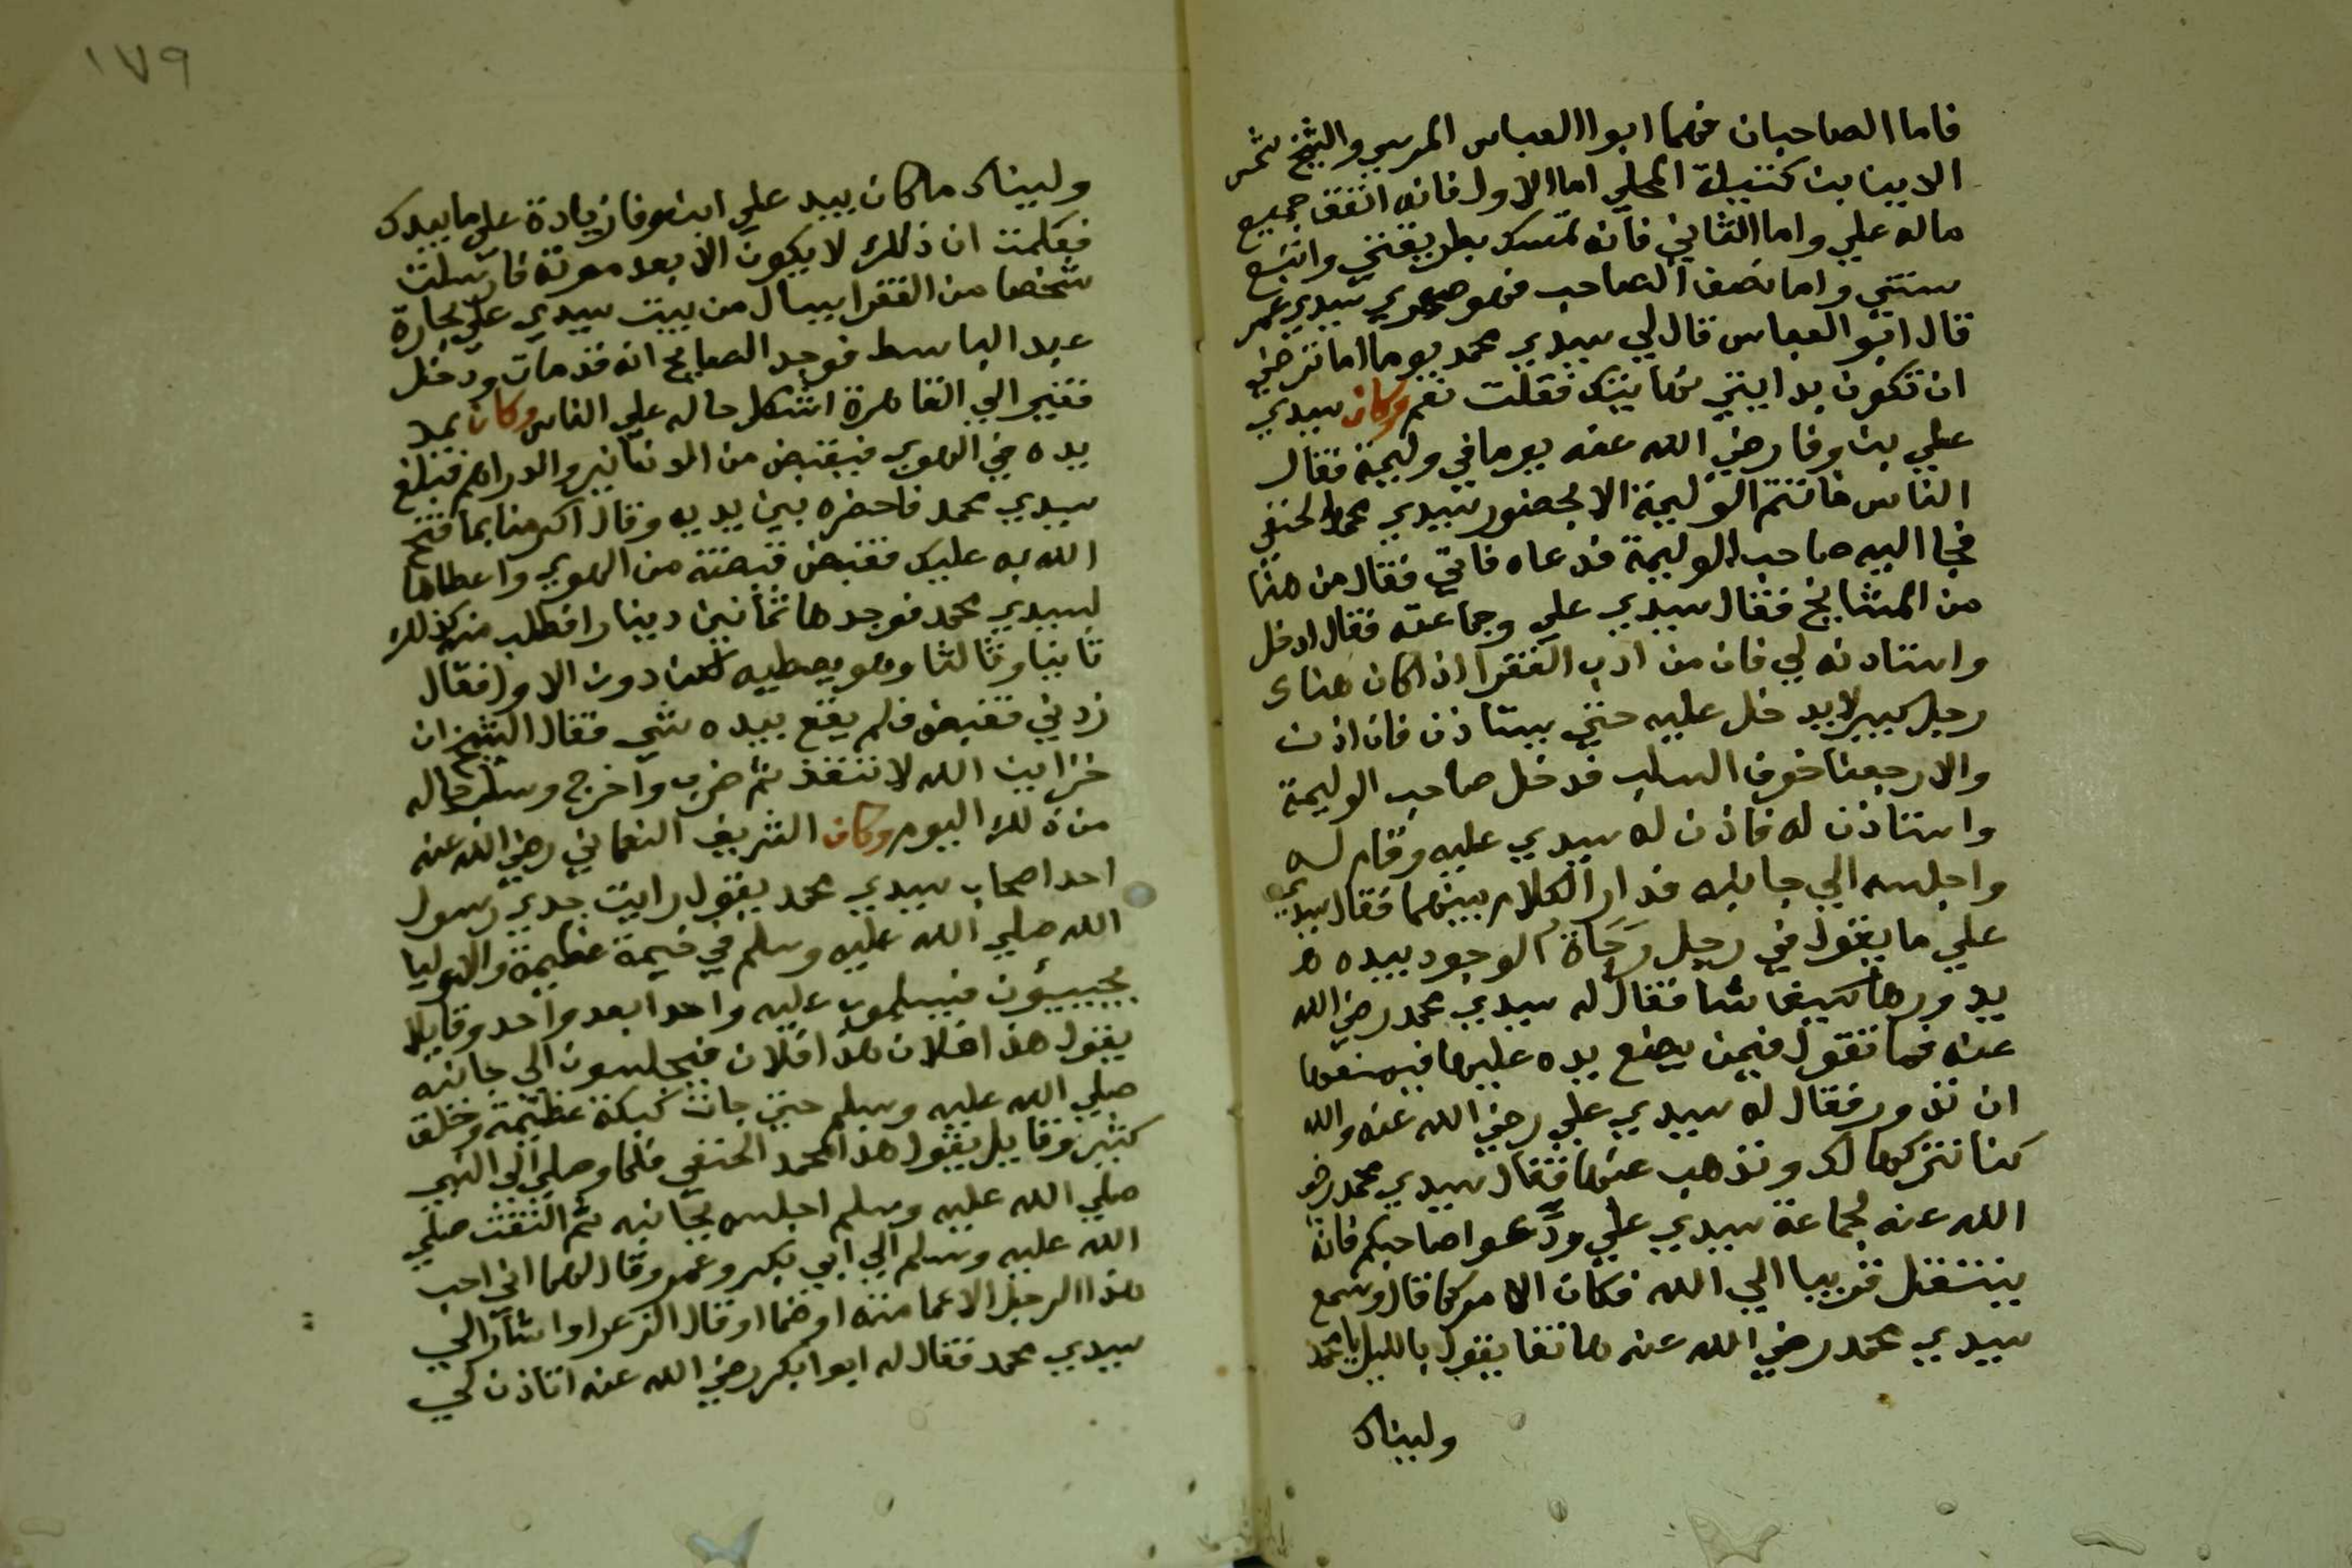 فاما الصاحبان فهما ابوا العباس المرسي والشيخ شمس
الدين بن كتيلة المحلي اما الاول فانه انفق جميع
ماله علي واما الثاني فانه تمسك بطريقتي واتبع
سنتي واما نصف الصاحب فهو صهري سيدي عمر
قال ابو العباس قال لي سيدي محمد يوما اما ترضي
ان تكون بدايتي نهايتك فقلت نعم وكان سيدي
علي بن وفا رضي الله عنه يوما في وليمة فقال
الناس ما تتم الوليمة الا بحضور سيدي محمد الحنفي
فجا اليه صاحب الوليمة فدعاه فاتي فقال من هنا
من المشايخ فقال سيدي علي وجماعته فقال ادخل
واستاذنه لي فان من ادب الفقرا اذا كان هناك
رجل كبير لا يدخل عليه حتي يستاذن فان اذن
والا رجعنا خوف السلب فدخل صاحب الوليمة
واستاذن له فاذن له سيدي عليه وقام له
واجلسه الي جانبه فدار الكلام بينهما فقال سيدي
علي ما يقول في رجل رَحَاةُ الوجود بيده
يدورها كيف شا فقال له سيدي محمد رضي الله
عنه فما تقول فيمن يضع يده عليها فيمنعها
ان تدور فقال له سيدي علي رضي الله عنه والله
كنا نتركها لك ونذهب عنها فقال سيدي محمد رضي
الله عنه لجماعة سيدي علي ودّعوا صاحبكم فانه
ينتقل قريبا الي الله فكان الامر كما قال وسمع
سيدي محمد رضي الله عنه هاتفا يقول بالليل يا محمد
وليناك
١٧٩
وليناك ما كان بيد علي ابن وفا زيادة علي ما بيدك
فعلمت ان ذلك لا يكون الا بعد موته فارسلت
شخصا من الفقرا يسال من بيت سيدي علي بحارة
عبد الباسط فوجد الصايح انه قد مات ودخل
فقير الي القاهرة اشكل حاله علي الناس وكان يمد
يده في الهوي فيقبض من الدنانير والدراهم فبلغ
سيدي محمد فاحضره بين يديه وقال اكرمنا بما فتح
الله به عليك فقبض قبضة من الهوي واعطاها
لسيدي محمد فوجدها ثمانين دينارا فطلب منه كذلك
ثانيا وثالثا وهو يعطيه لكن دون الاول فقال
زدني فقبض فلم يقع بيده شي فقال الشيخ ان
خزاين الله لا تنفذ ثم ضرب واخرج وسلب حاله
من ذلك اليوم وكان الشريف النعماني رضي الله عنه
احد اصحاب سيدي محمد يقول رايت جدي رسول
الله صلي الله عليه وسلم في خيمة عظيمة والاوليا
يجيبيؤن فيسلمون عليه واحدا بعد واحد وقايلا
يقول هذا فلان هذا فلان فيجلسون الي جانبه
صلي الله عليه وسلم حتي جات كبكبة عظيمة وخلق
كثير وقايل يقول هذا محمد الحنفي فلما وصل الي النبي
صلي الله عليه وسلم اجلسه بجانبه ثم التفت صلي
الله عليه وسلم الي ابي بكر وعمر وقال لهما اني احب
هذا الرجل الا عمامته او قال الزعرا واشار الي
سيدي محمد فقال له ابوا بكر رضي الله عنه اتاذن لي